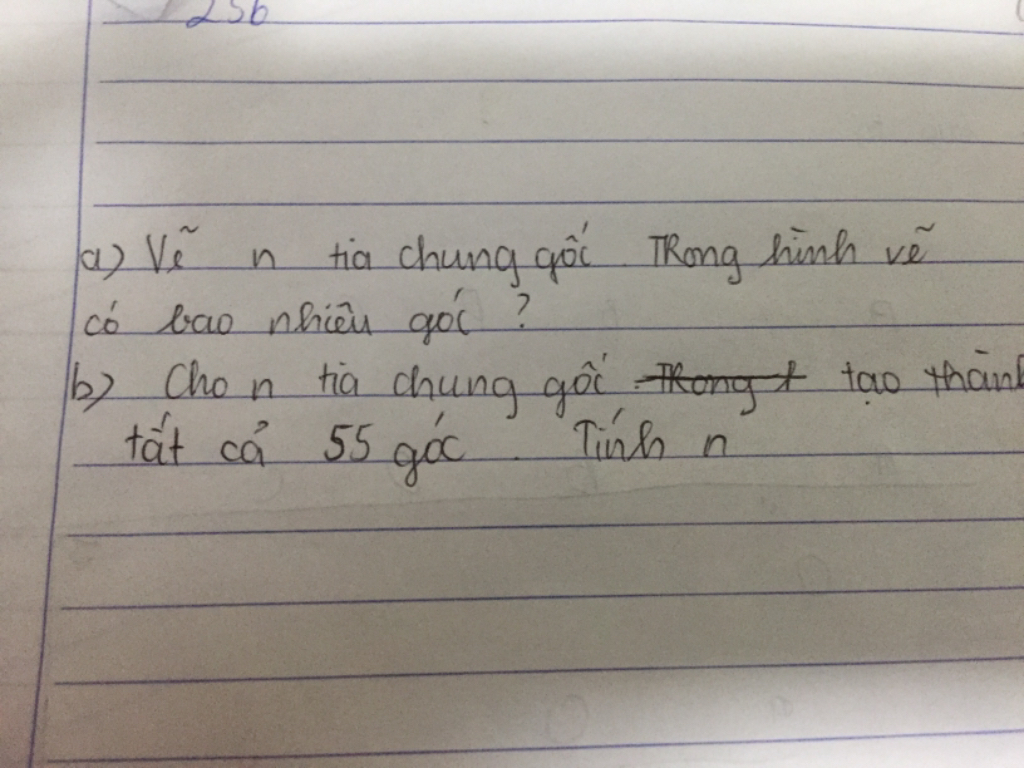 256
a) Vẽ n tia chung gốc. TRong hình vẽ
có bao nhiêu góc ?
b) Cho n tia chung gốc tạo thành
tất cả 55 góc. Tính n